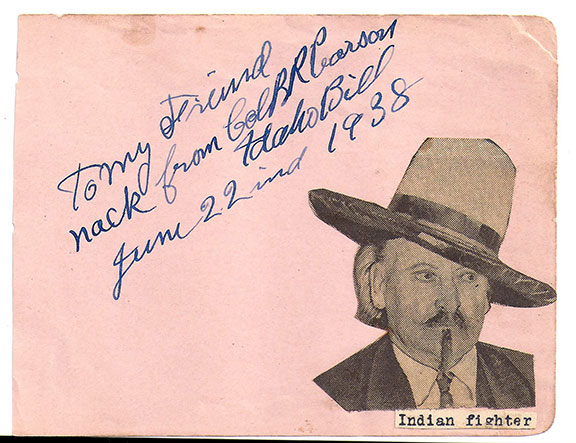 To my Friend
nack from Col B R Pearson
Idaho Bill
June 22ind 1938
Indian fighter